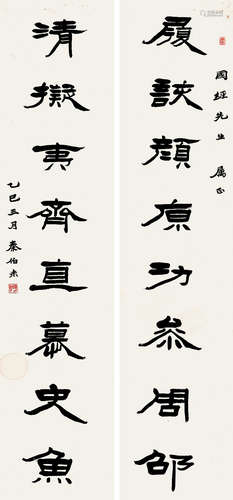 國經先生 屬正
履該顏原功參周邵
清擬夷齊直慕史魚
乙巳三月 秦伯未